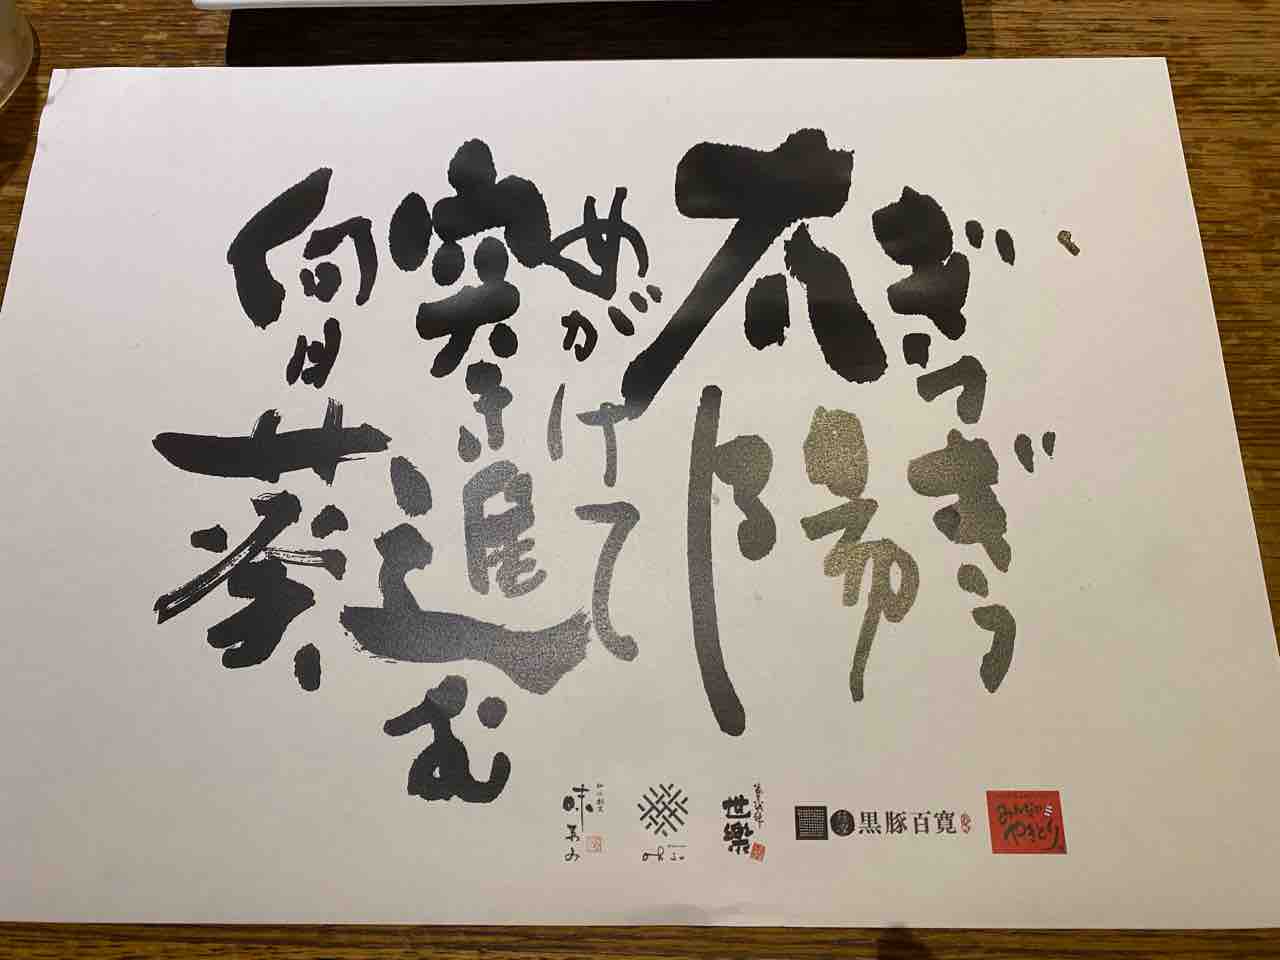 ぎっつぎっつ
太陽
めがけて
突き進む
向日葵
味
世樂
黒豚百寛
みんなの
やきとり